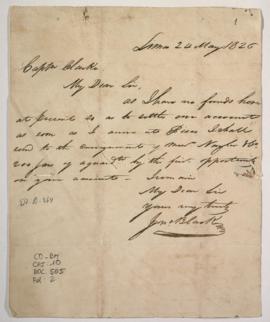 1
Lima 24 May 1826
Captn Clark
My Dear Sir,
as I have no funds here
at present so as to settle our account
as soon as I arrive at Pisco I shall
send to the consignment of Messrs Naylor &
200 jars of aguardte by the first opportunity
on your account - I remain
My Dear Sir
Yours very truly
Jno Black
CO-BM
CAJ. 10
DOC. 505
Fol. 2